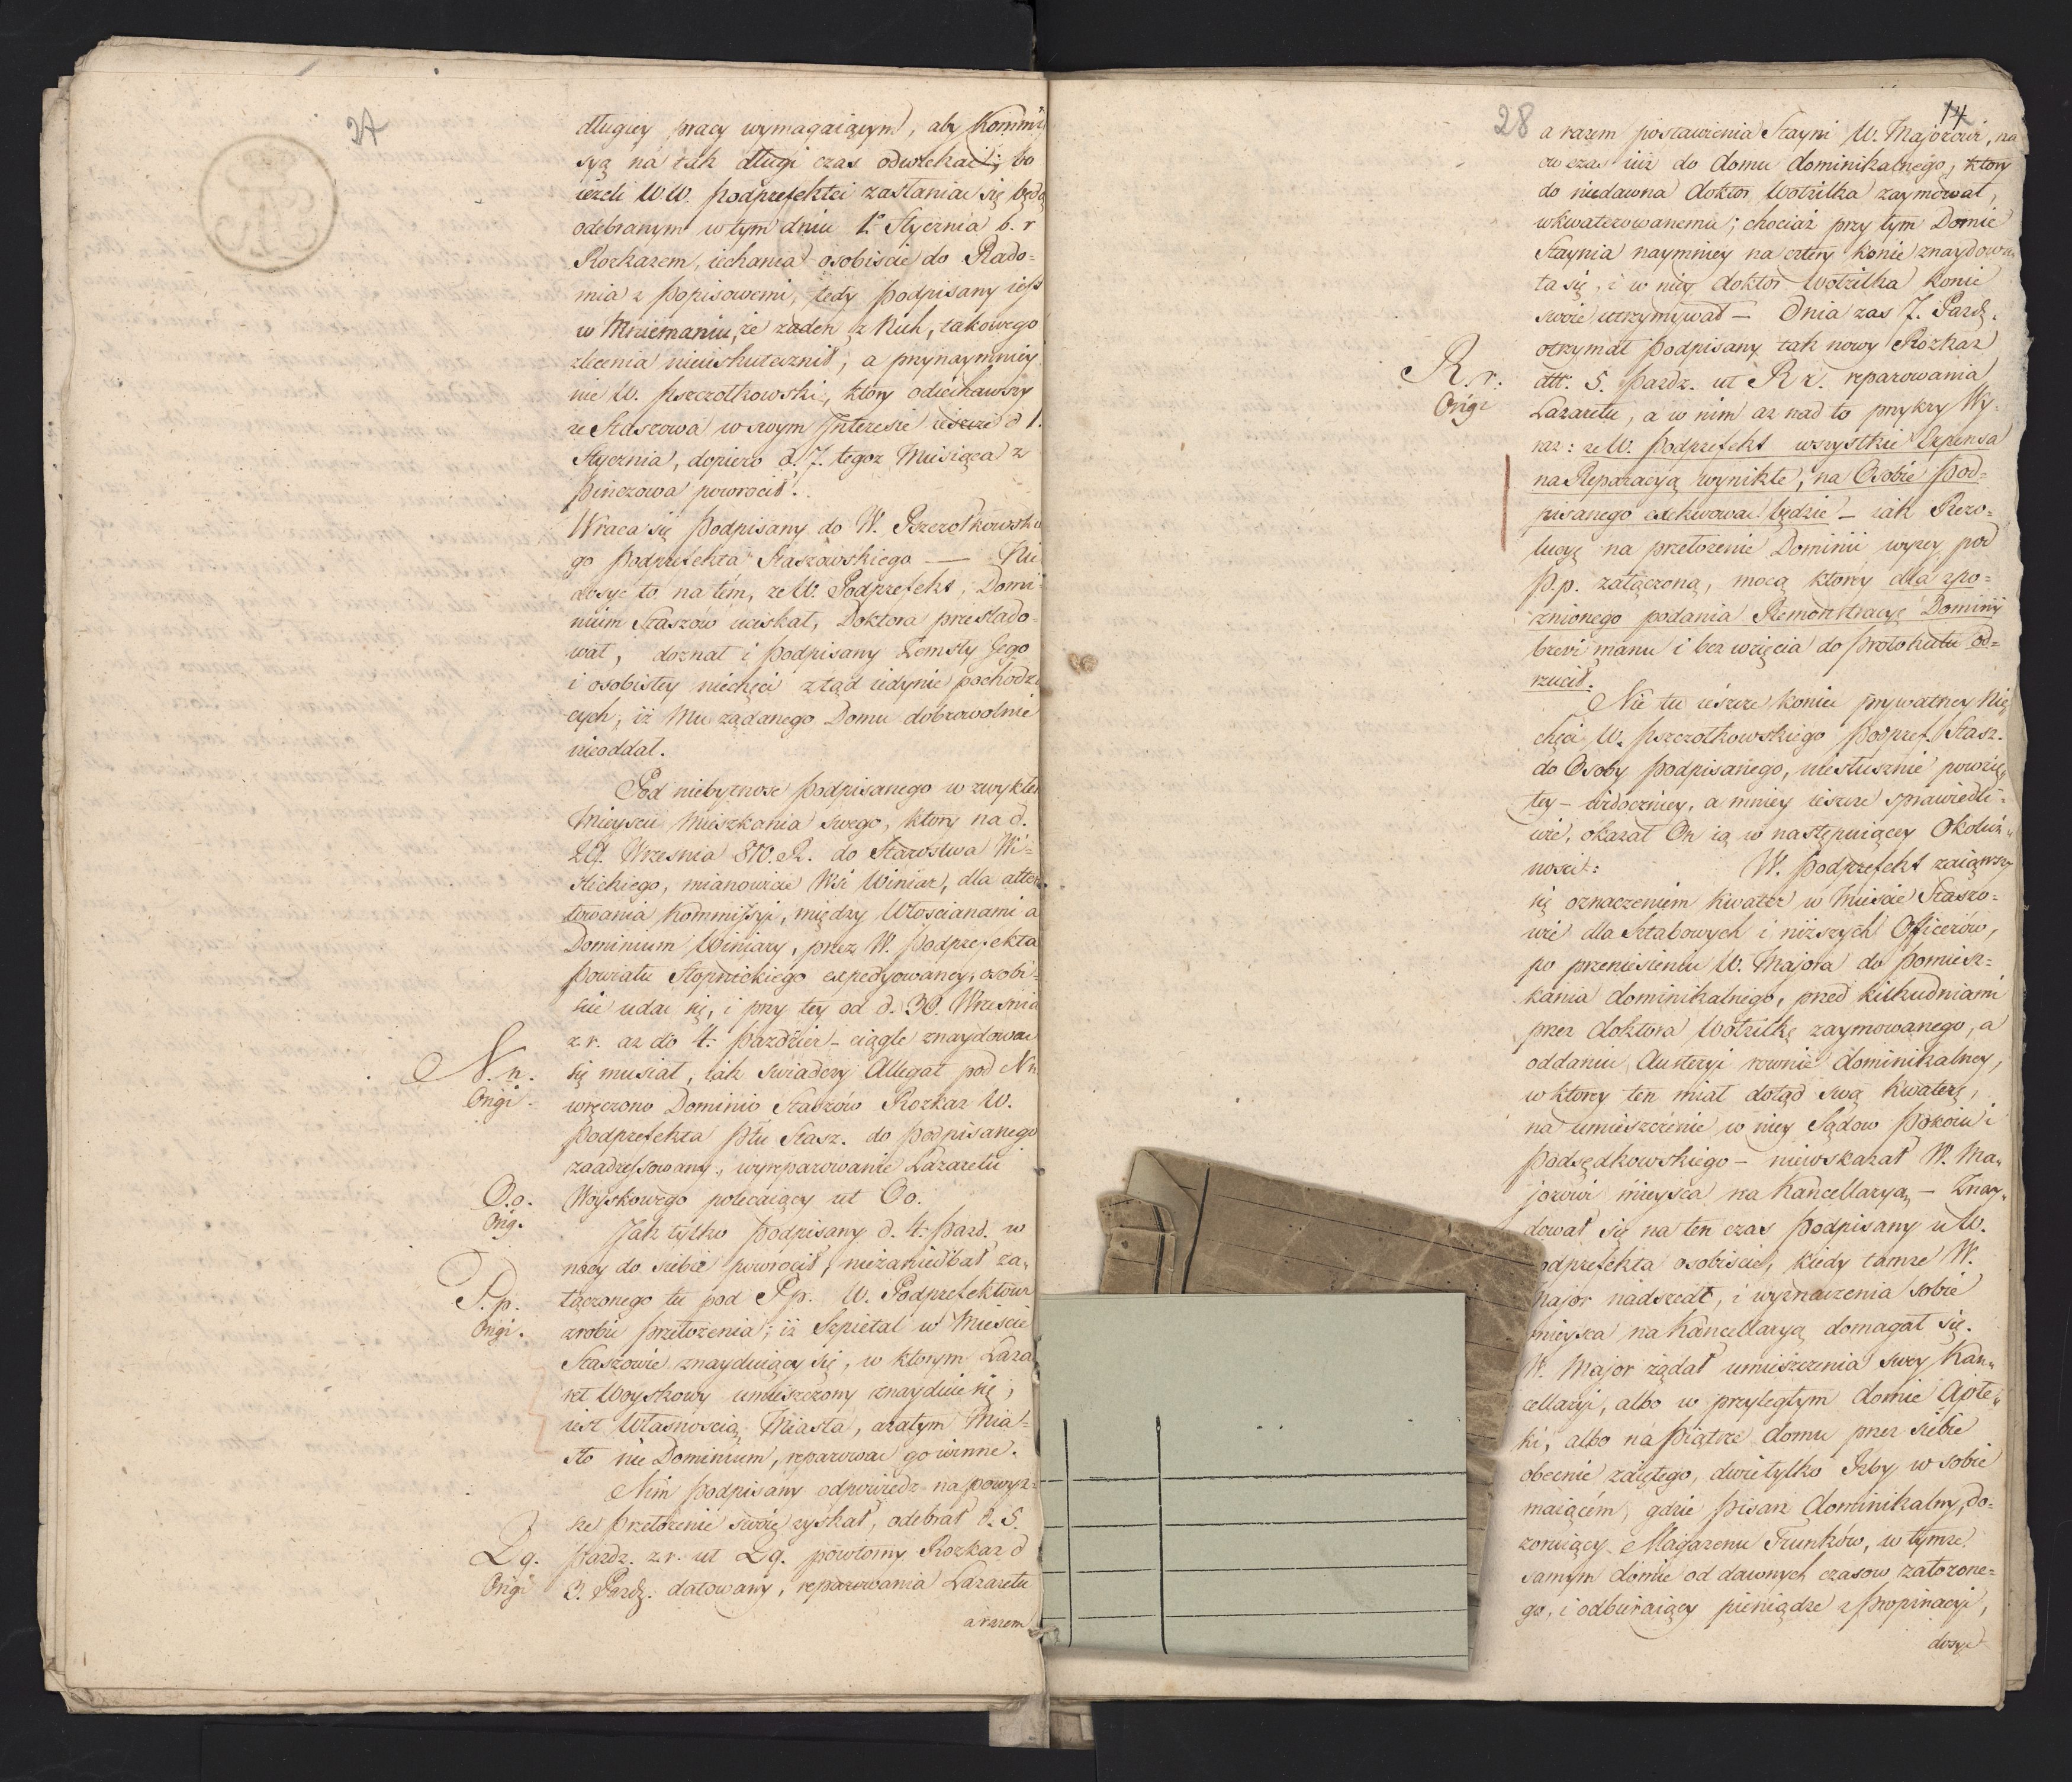 27
długiey pracy wymagaiącym, aby Kommis
syą na tak długi czas odwlekać; bo
ieżeli WW. Podprefektci zasłaniać się będą
odebranym w tym dniu 1. Stycznia b. r
Rozkazem, iechania osobiście do Rado-
mia z Popisowemi, tedy Podpisany iest
w Mniemaniu, że żaden z Nich, takowego
zlecenia nieuskutecznił, a przynaymniey
nie W. Pszczołkowski, ktory odiechawszy
ze Staszowa w swoym Interesie ieszcze d 1.
Stycznia, dopiero d. 7. tegoż Miesiąca z
Pinczowa powrocił.
Wraca się Podpisany do W. Pszczołkowskie
go Podprefekta Staszowskiego — Nie
dosyć to na tém, że W. Podprefekt, Domi-
nium Staszów uciskał, Doktora prześlado-
wał, doznał i Podpisany Zemsty Jego
i osobistey niechęci ztąd iedynie pochodzą
cych, iż Mu żądanego Domu dobrowolnie
nieoddał.
Pod niebytność Podpisanego w zwykłem
Mieyscu Mieszkania swego, ktory na d.
29. Września 810. R. do Starostwa Wi-
ślickiego, mianowicie Wsi Winiar, dla atten
towania Kommissyi, między Włoscianami a
Dominium Winiary, przez W. Podprefekta
Powiatu Stopnickiego expedyowaney, osobi-
ście udać się, i przy tey od d. 30. Września
z r. aż do 4. Paździer- ciągle znaydować
N. n. się musiał, iak swiadczy Allegat pod Nn
Origi. wręczono Dominio Staszów Rozkaz W.
Podprefekta Pttu Stasz. do Podpisanego
zaadressowany, wyreparowanie Lazaretu
O.o. Woyskowego polecaiący ut Oo.
Orig. Jak tylko Podpisany d. 4. Pazd. w
nocy do siebie powrocił, niezaniedbał za-
P. p. łączonego tu pod Pp. W. Podprefektowi
Origi. zrobić przełożenia; iż Szpital w Mieście
Staszowie znayduiący się, w ktorym Laza
ret Woyskowy umieszczony znayduie się,
iest Własnością Miasta, a zatym Mia-
sto nie Dominium, reparować go winne.
Nim Podpisany odpowiedz na powyż-
sze przełożenie swoie zyskał, odebrał d. 5.
Qq. Pazdz. z r. ut Qq. powtorny Rozkaz d
Origi 3. Pazdz. datowany, reparowania Lazaretu
a razem
28 14
a razem postawienia Stayni W. Majorowi, na
ow czas iuż do domu dominikalnego, ktory
do niedawna doktor Wotzilka zaymował,
wkwaterowanemu; chociaż przy tym Domie
Staynia naymniey na cztery konie znaydowa-
ła się, i w niey doktor Wotzilka konie
swoie utrzymywał — Dnia zas 7. Pazdz.
otrzymał Podpisany tak nowy Rozkaz
R. r. dtt. 5. Pazdz. ut R r. reparowania
Origi Lazaretu, a w nim aż nad to przykry Wy-
raz: że W. Podprefekt wszystkie Expensa
na Reparacyą wynikłe, na Osobie Pod-
pisanego exekwować będzie — iak Rezo-
lucyę na przełożenie Dominii wyżey pod
P.p. załączoną, mocą ktorey dla spo-
znionego podania Remonstracyę Dominii
brevi manu i bez wzięcia do Protokułu od-
rzucił.
Nie tu ieszcze koniec prywatney Nie-
chęci W. Pszczołkowskiego Podpref. Stasz.
do Osoby Podpisanego, niesłusznie powzię-
tey — widoczniey, a mniey ieszcze sprawiedli-
wie, okazał On ią w następuiącey Okolicz-
nosci: W. Podprefekt zaiąwszy
się oznaczeniem kwater w Mieście Staszo-
wie dla Sztabowych i niższych Officerów,
po przeniesieniu W. Majora do Pomiesz-
kania dominikalnego, przed kilkudniami
przez doktora Wotzilkę zaymowanego, a
oddaniu Austeryi rownie dominikalney,
w ktorey ten miał dotąd swą kwaterę,
na umieszczenie w niey Sądow Pokoiu i
Podsędkowskiego — niewskazał W. Ma-
jorowi mieysca na Kancellaryą — Znay-
dował się na ten czas Podpisany u W.
odprefekta osobiście, kiedy tamże W.
Major nadszedł, i wyznaczenia sobie
mieysca na Kancellaryą domagał się.
W. Major żądał umieszczenia swey Kan-
cellaryi, albo w przyległym domie Apte-
ki, albo na Piątrze domu przez siebie
obecnie zaiętego, dwie tylko Izby w sobie
maiącém, gdzie Pisarz dominikalny, do-
zoruiący Magazenu Trunków, w tymże
samym domie od dawnych czasow założone-
go, i odbieraiący pieniądze z Propinacyi,
dosyć